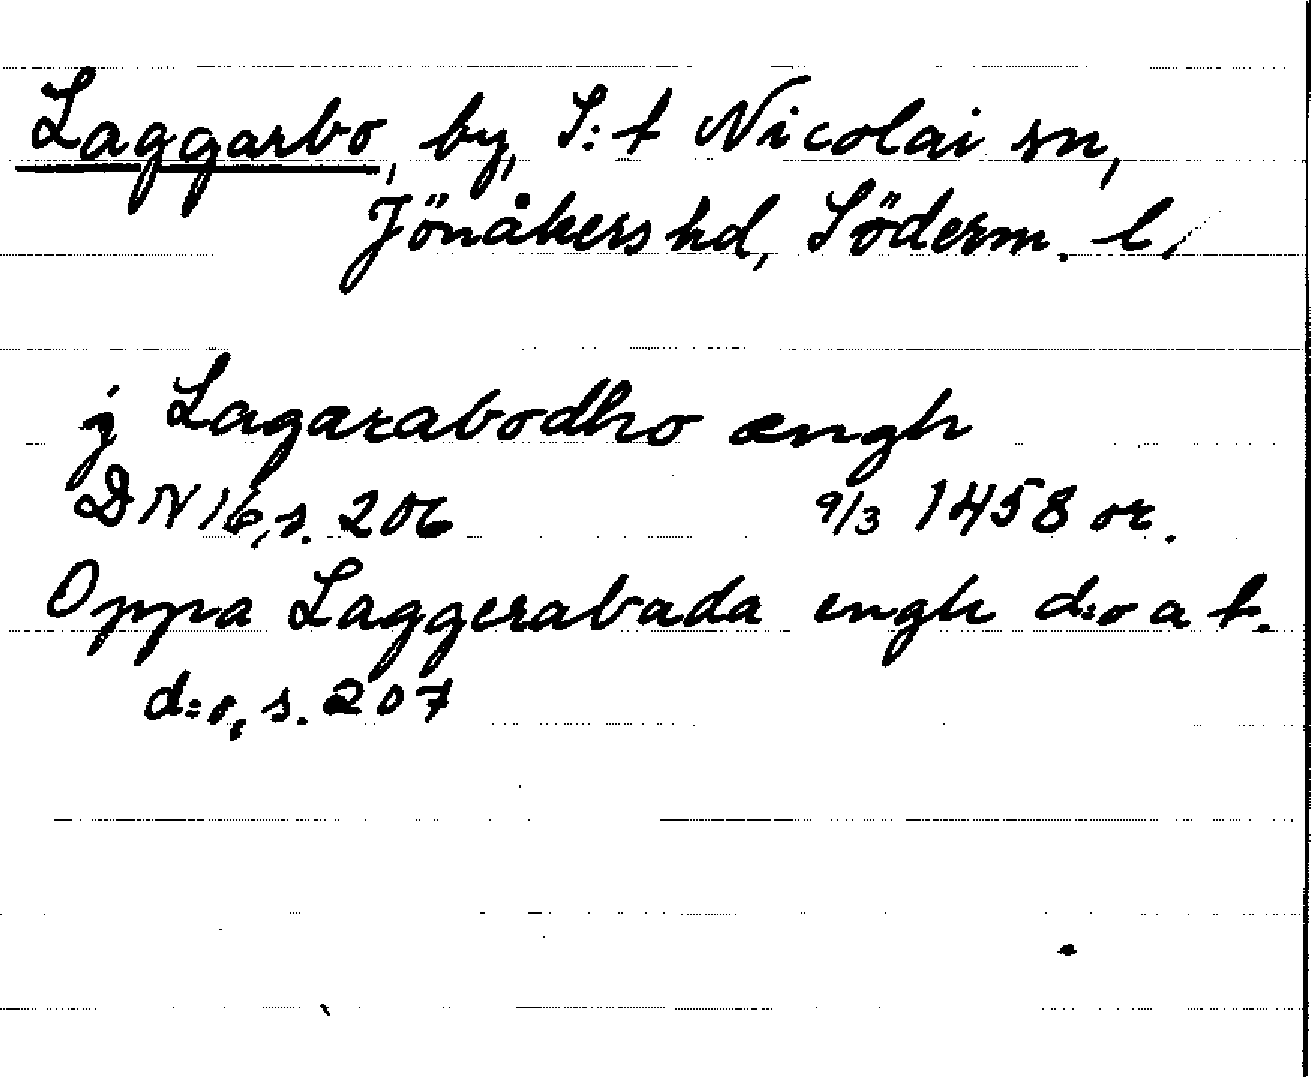 Laggarbo, by, S:t Nicolai sn,
Jönåkers hd, Söderm. l.
j Lagarabodho ængh
DN 16, s. 206 9/3 1458 or.
Oppa Laggerabada engh d:o a t.
d:o, s. 207